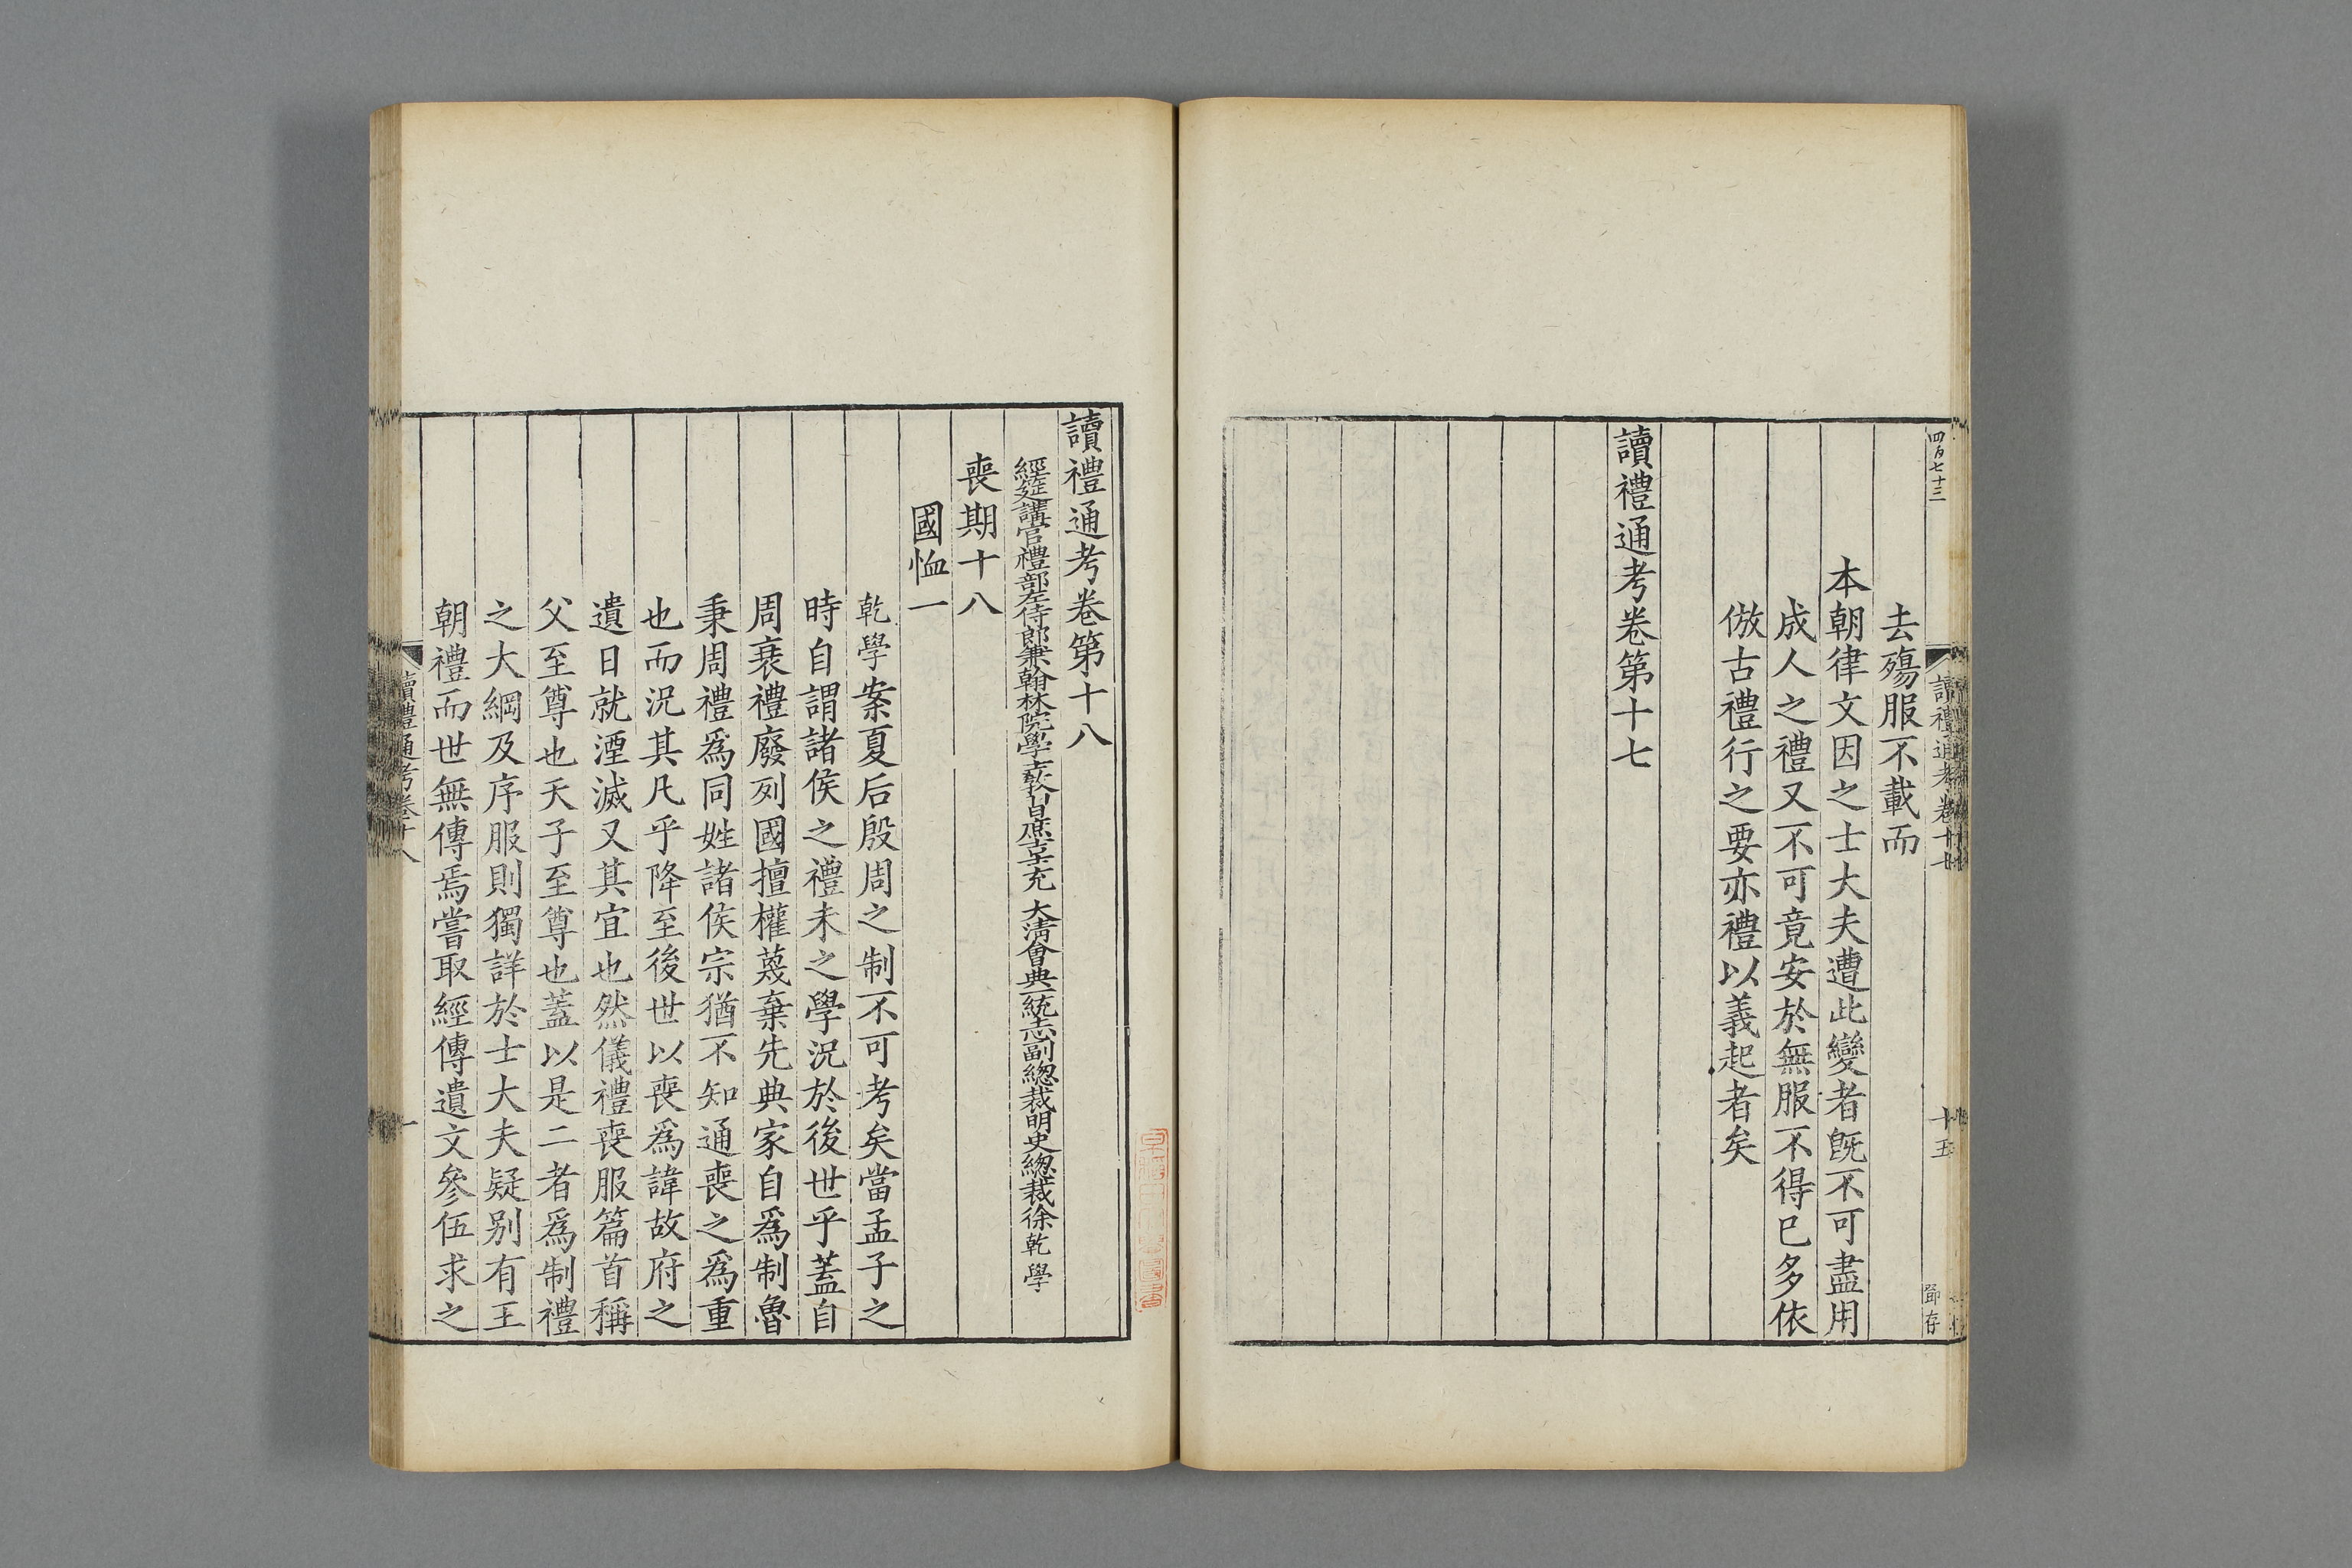 四百七十三
讀禮通考卷十七
十五
鄧存
去殤服不載而
本朝律文因之士大夫遭此變者既不可盡用
成人之禮又不可竟安於無服不得已多依
倣古禮行之要亦禮以義起者矣
讀禮通考卷第十七
讀禮通考卷第十八
經筵講官禮部左侍郎兼翰林院學士教習庶吉士充 大清會典一統志副總裁明史總裁徐乾學
喪期十八
國恤一
乾學案夏后殷周之制不可考矣當孟子之
時自謂諸侯之禮未之學況於後世乎蓋自
周衰禮廢列國擅權蔑棄先典家自爲制魯
秉周禮爲同姓諸侯宗猶不知通喪之爲重
也而況其凡乎降至後世以喪爲諱故府之
遺日就湮滅又其宜也然儀禮喪服篇首稱
父至尊也天子至尊也蓋以是二者爲制禮
之大綱及序服則獨詳於士大夫疑别有王
朝禮而世無傳焉嘗取經傳遺文參伍求之
讀禮通考卷十八
一